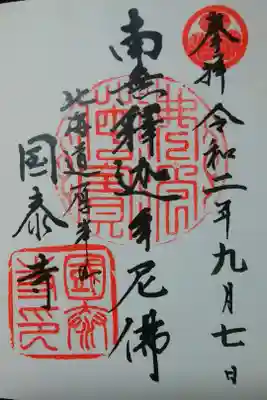 奉拝 令和二年九月七日
南無釋迦牟尼佛
北海道厚岸
国泰寺